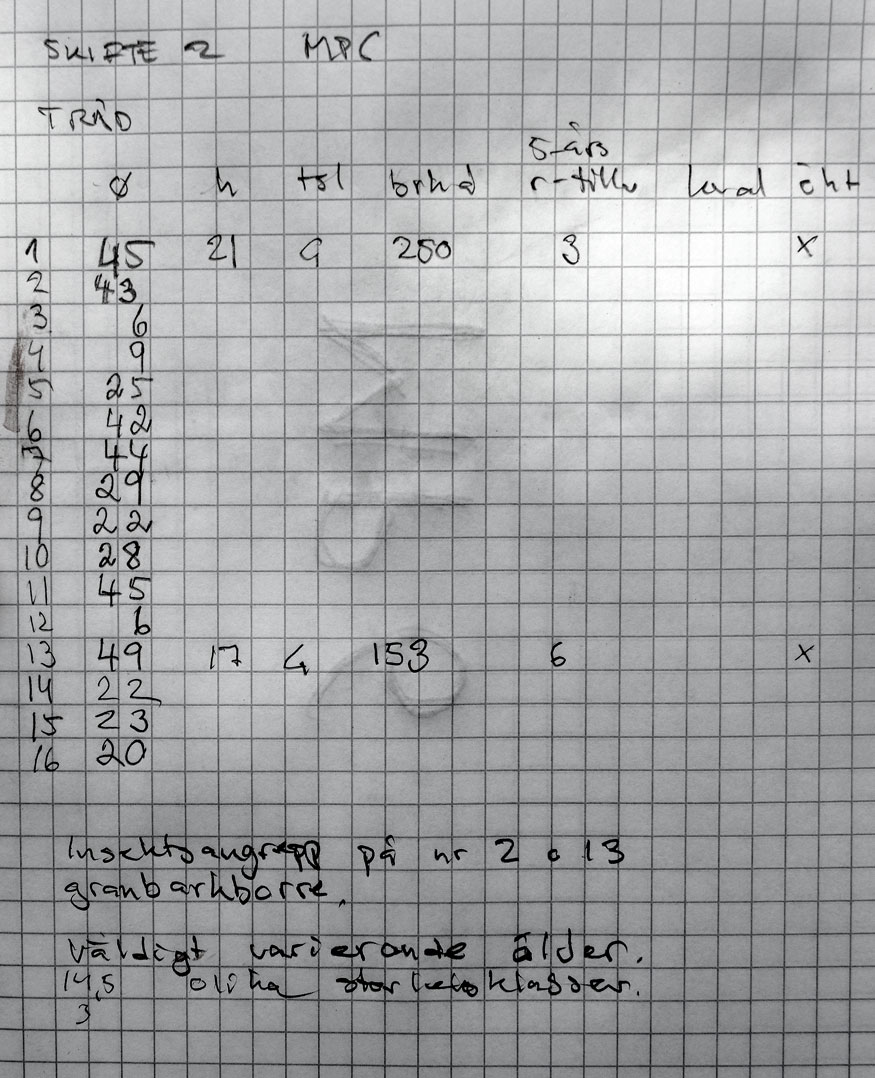 SKIFTE 2 MPC
TRÄD
5-års
Ø h tsl brhd r-tillv kval öht
1 45 21 9 250 3 x
2 43
3 6
4 9
5 25
6 42
7 44
8 29
9 22
10 28
11 45
12 6
13 49 17 4 153 6 x
14 22
15 23
16 20
Insektsangrepp på nr 2 o 13
granbarkborre.
Väldigt varierande ålder.
14,5 olika storleksklasser.
3